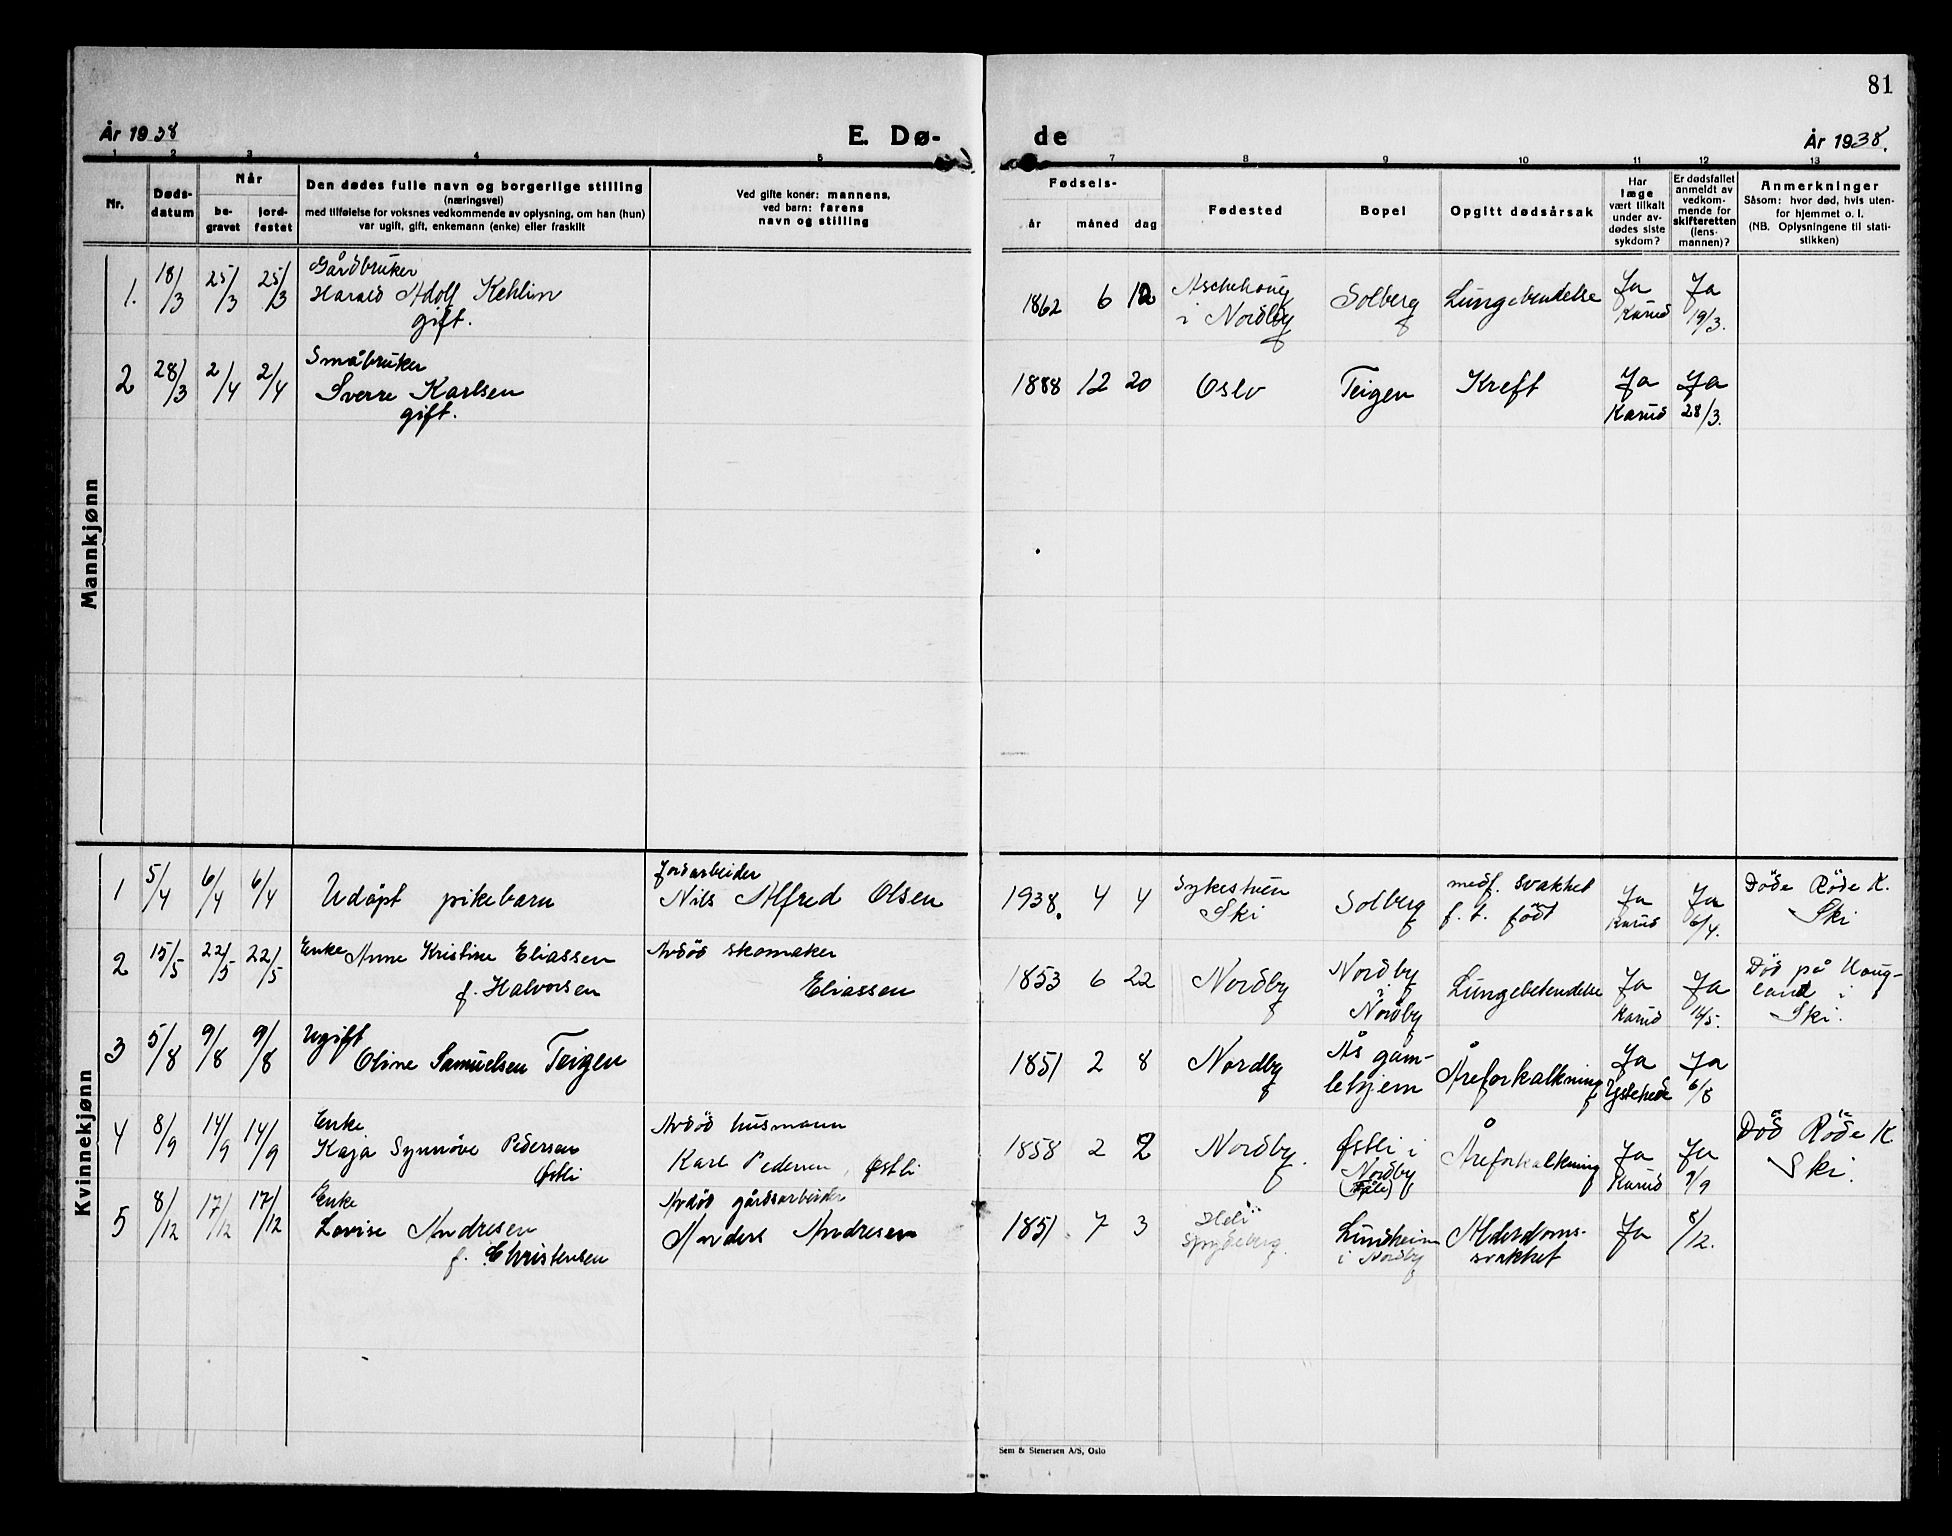 81
År 1938
E. Dø-
de
År 1938.
1 2 3 4 5 7 8 9 10 11 12 13
Nr.
Døds-
datum
Når
be-
gravet
jord-
festet
Den dødes fulle navn og borgerlige stilling
(næringsvei)
med tilføielse for voksnes vedkommende av oplysning, om han (hun)
var ugift, gift, enkemann (enke) eller fraskilt
Ved gifte koner: mannens,
ved barn: farens
navn og stilling
Fødsels-
år måned dag
Fødested
Bopel
Opgitt dødsårsak
Har
læge
vært tilkalt
under av-
dødes siste
sykdom?
Er dødsfallet
anmeldt av
vedkom-
mende for
skifteretten
(lens-
mannen)?
Anmerkninger
Såsom: hvor død, hvis uten-
for hjemmet o. l.
(NB. Oplysningene til stati-
stikken)
Mannkjønn
1. 18/3 25/3 25/3
Gårdbruker
Harald Adolf Kehlin
gift.
1862 6 12
Aschehoug
i Nordby
Solberg
Lungebendelse
Ja
Karud
Ja
19/3.
2 28/3 2/4 2/4
Småbruker
Sverre Karlsen
gift.
1888 12 20
Oslo
Teigen
Kreft
Ja
Karud
Ja
28/3.
Kvinnekjønn
1 5/4 6/4 6/4
Udøpt pikebarn
Jordarbeider
Nils Alfred Olsen
1938. 4 4
Sykestuen
Ski
Solberg
medf. svakhet
f. t. född
Ja
Karud
Ja
6/4.
Döde Röde K.
Ski
2 15/5 22/5 22/5
Enke Anne Kristine Eliassen
f. Halvorsen
Avdöd skomaker
Eliassen
1853 6 22
Nordby
Nordby
i
Nordby
Lungebetendelse
Ja
Karud
Ja
16/5.
Död på Haug-
land i
Ski.
3 5/8 9/8 9/8
Ugift
Oline Samuelsen Teigen
1851 2 8
Nordby
Ås gam-
lehjem
Åreforkalkning
Ja
Ja
6/8
4 8/9 14/9 14/9
Enke
Kaja Synnøve Pedersen
Østli
Avdöd husmann
Karl Pedersen, Østli
1858 2 2
Nordby.
Østli i
Nordby
Åreforkalkning
Ja
Karud
Ja
9/9
Död Röde K
Ski.
5 8/12 17/12 17/12
Enke
Lovise Andresen
f. Christensen
Avdöd gårdsarbeider
Anders Andresen
1851. 7 3
Heli
Spydeberg.
Lundheim
i Nordby
Alderdoms-
svakhet
Ja
8/12.
Sem & Stenersen A/S, Oslo